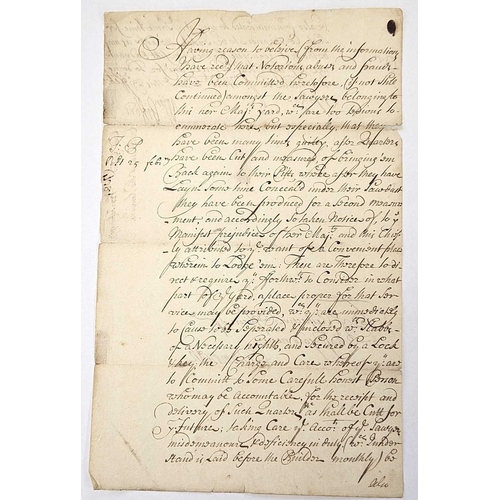 Having reason to believe, from the information
I have recd that Notorious abuses and frauds
have been Committed heretofore, (if not still
Continued) amongst the Sawyers belonging to
this her Majts yard, wch are too tedious to
enumerate here, but especially that they
have been many times guilty, after Quarters
have been Cutt and measured of bringing 'em
Back again to their Pitts where after they have
Layn some time Conceald under their Sawdust
they have been produced for a Second measure-
ment, and accordingly so taken Notice of, to ye
Manifest Prejudice of Her Majts and this Chief-
ly attributed to ye want of a Convenient place
wherein to Lodge 'em. These are Therefore to di-
rect & require you forthwth to Consider in what
part of ye Yard, a place proper for that Ser-
vice, may be provided wch you are immediately
to cause to be Seperated & inclosed wth Slabs
of a Necessary hight, and Secured by a Lock
& key, the Charge and Care whereof you are
to Committ to Some Carefull honest Person
who may be Accountable for the receipt and
delivery of Such Quarters as shall be Cutt for
ye future; taking Care ye Acct of ye Sawyers
misdemeanour & deficiency in duty wch I under-
stand is Laid before the Builder monthly) be
Also
25 feb